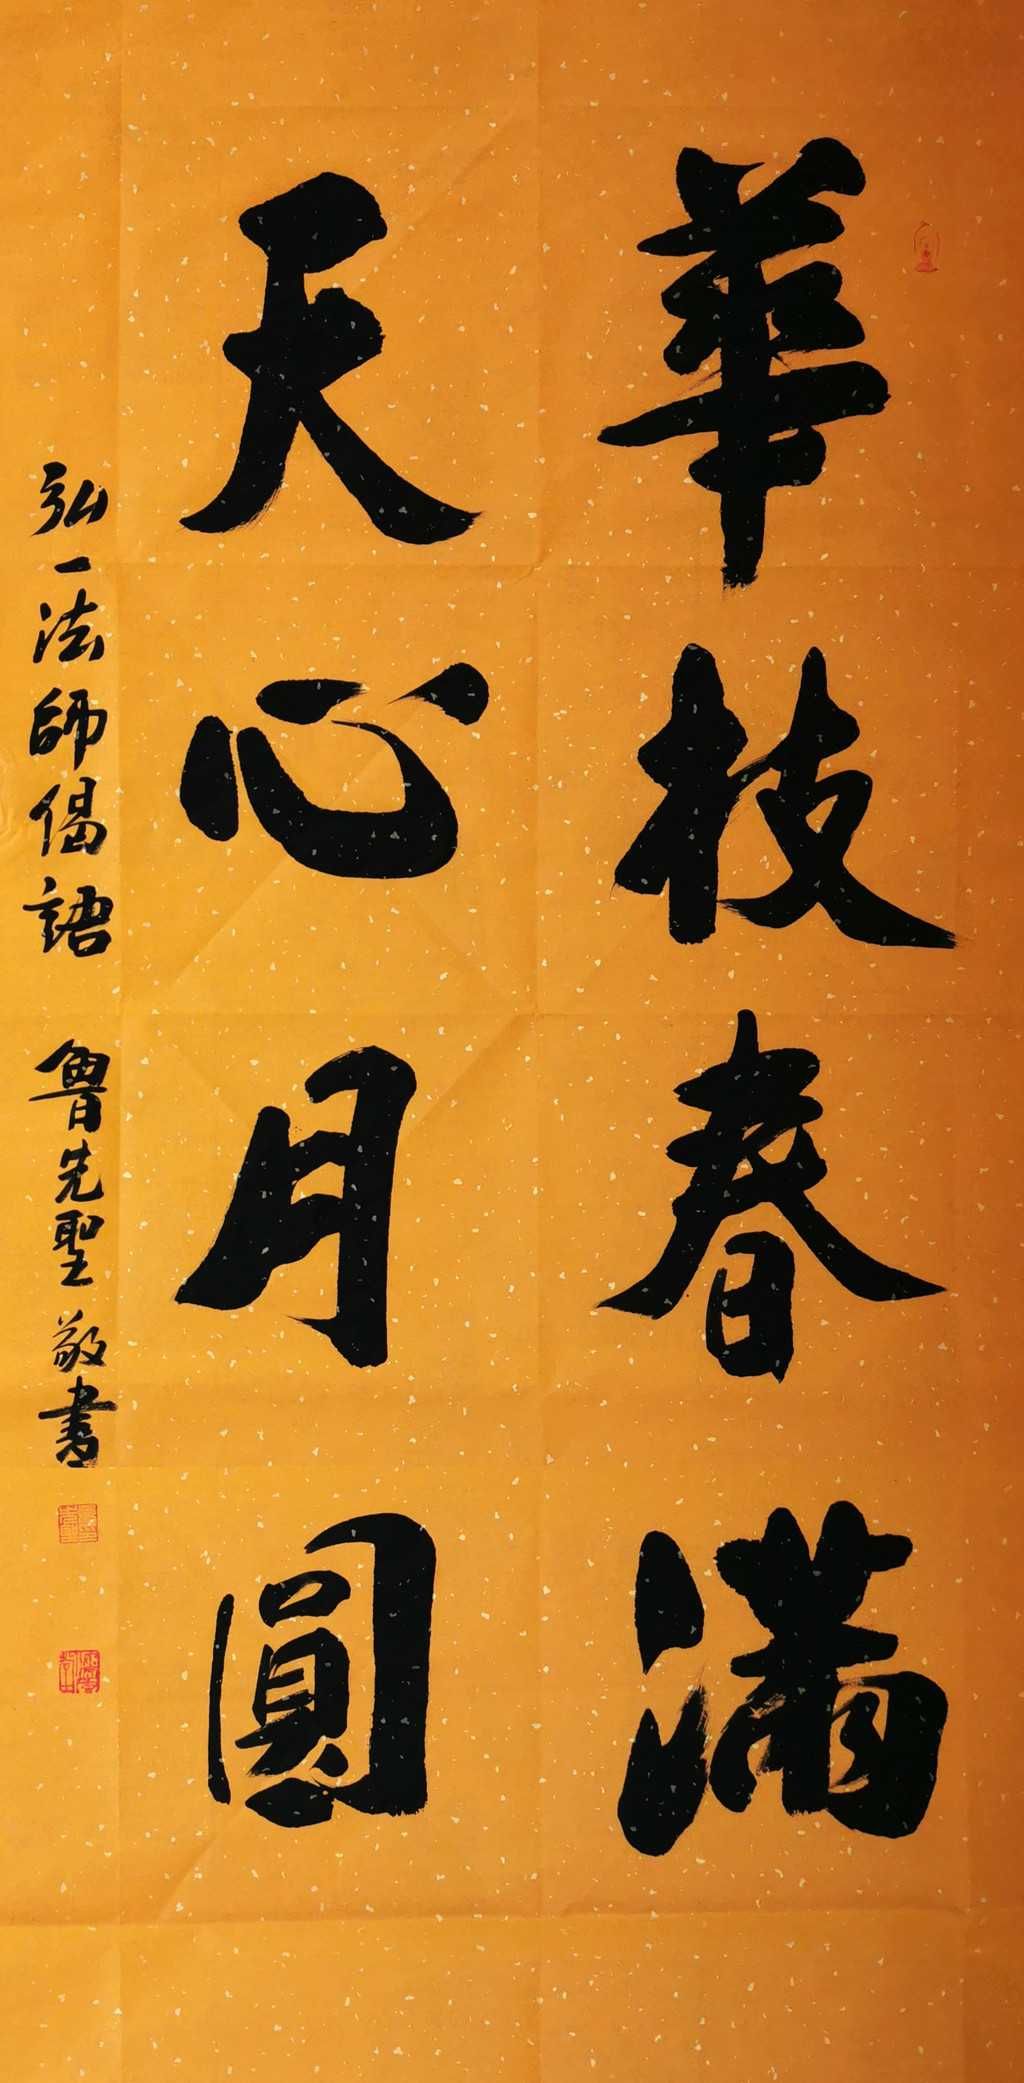 華枝春滿
天心月圓
弘一法師偈語 魯先聖敬書